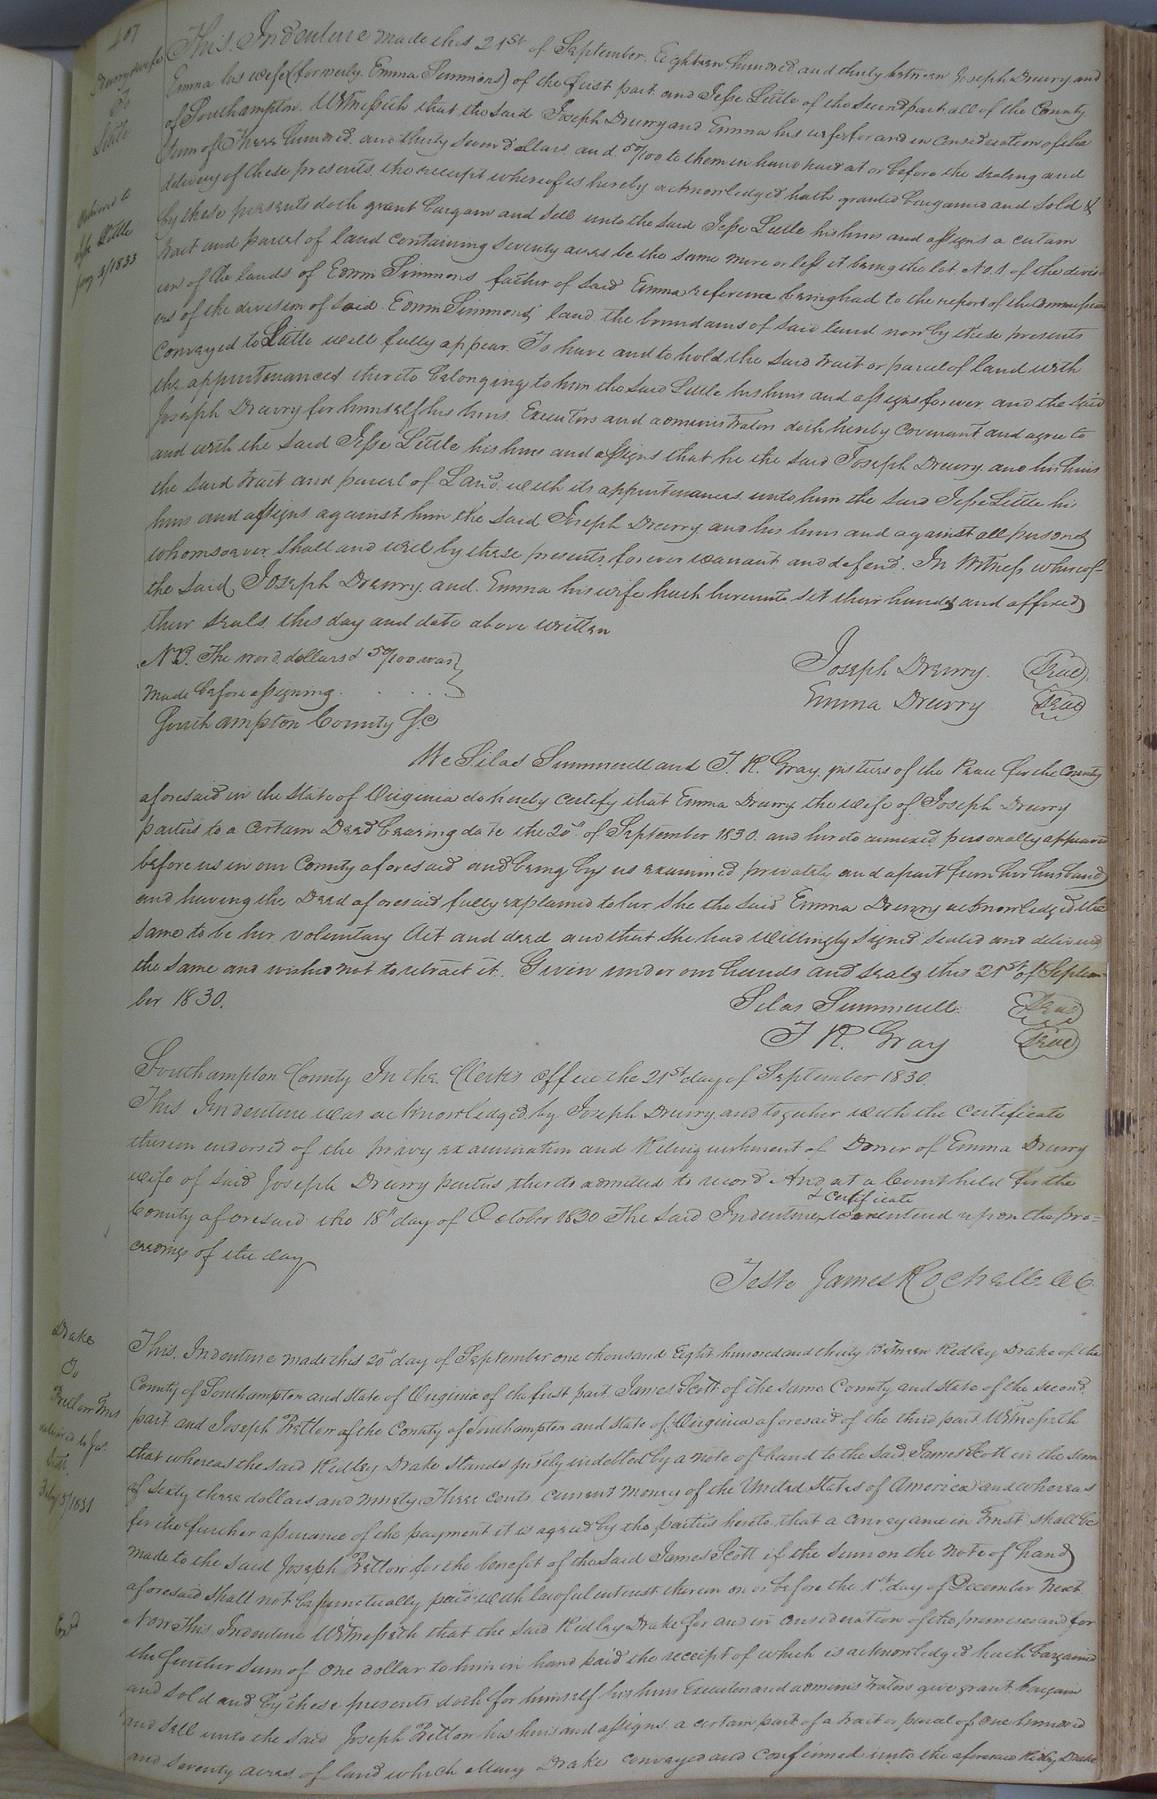 207
Drewry & wife
To
Little
delivered to
Jesse Little
Jany 31/1833
This Indenture made this 21st of September, Eighteen hundred and thirty between Joseph Drewry and
Emma his wife (formerly Emma Simmons) of the first part and Jesse Little of the second part all of the County
of Southampton. Witnesseth that the said Joseph Drewry and Emma his wife for and in consideration of the
sum of Three hundred and thirty seven dollars and 50/100 to them in hand paid at or before the sealing and
delivery of these presents, the receipt whereof is hereby acknowledged hath granted bargained and sold &
by these presents doth grant bargain and sell unto the said Jesse Little his heirs and assigns a certain
tract and parcel of land containing seventy acres be the same more or less it being the lot No. 1 of the divis-
ion of the lands of Edwin Simmons father of said Emma reference being had to the report of the commission
ers of the division of said Edwin Simmons' land the boundaries of said land now by these presents
conveyed to Little will fully appear. To have and to hold the said tract or parcel of land with
the appurtenances thereto belonging to him the said Little his heirs and assigns forever and the said
Joseph Drewry for himself his heirs Executors and administrators doth hereby covenant and agree to
and with the said Jesse Little his heirs and assigns that he the said Joseph Drewry and his heirs
the said tract and parcel of Land with its appurtenances unto him the said Jesse Little his
heirs and assigns against him the said Joseph Drewry and his heirs and against all persons
whomsoever shall and will by these presents forever warrant and defend. In Witness whereof
the said Joseph Drewry and Emma his wife hath hereunto set their hands and affixed
their seals this day and date above written
N.B. The word dollars & 50/100 was
made before assigning. . . . .
Joseph Drewry. Seal
Emma Drewry Seal
Southampton County Sc
We Silas Summerell and J. R. Gray justices of the Peace for the County
aforesaid in the State of Virginia do hereby certify that Emma Drewry the wife of Joseph Drewry
parties to a certain Deed bearing date the 20th of September 1830 and hereto annexed personally appeared
before us in our County aforesaid and being by us examined privately and apart from her husband
and having the Deed aforesaid fully explained to her she the said Emma Drewry acknowledged the
same to be her voluntary Act and deed and that she had willingly signed sealed and delivered
the same and wished not to retract it. Given under our hands and seals this 21st of Septem-
ber 1830.
Silas Summerell. Seal
J R. Gray Seal
Southampton County In the Clerks office the 21st day of September 1830.
This Indenture was acknowledged by Joseph Drewry and together with the certificate
thereon endorsed of the privy examination and Relinquishment of Dower of Emma Drewry
wife of said Joseph Drewry parties thereto admitted to record And at a Court held for the
County aforesaid the 18th day of October 1830 The said Indenture & certificate were entered upon the pro-
ceedings of the day
Teste James Rochelle C C.
Drake
To
Bretlow Trus
delivered to Jas.
Scott
Feby 5/1831
Exd
This Indenture made this 20th day of September one thousand Eight hundred and thirty Between Ridley Drake of the
County of Southampton and State of Virginia of the first part, James Scott of the same County and State of the second
part and Joseph Bretlow of the County of Southampton and State of Virginia aforesaid of the third part Witnesseth
that whereas the said Ridley Drake stands justly indebted by a note of hand to the said James Scott in the sum
of Sixty three dollars and ninety Three cents current money of the United States of America and whereas
for the further assurance of the payment it is agreed by the parties hereto, that a conveyance in Trust shall be
made to the said Joseph Bretlow for the benefit of the said James Scott if the sum on the note of hand
aforesaid shall not be punctually paid with lawful interest thereon on or before the 1st day of December Next
Now This Indenture Witnesseth that the said Ridley Drake for and in consideration of the premises and for
the further sum of one dollar to him in hand paid the receipt of which is acknowledged hath bargained
and sold and by these presents doth for himself his heirs Executors and administrators give grant bargain
and sell unto the said Joseph Bretlow his heirs and assigns a certain part of a tract or parcel of one hundred
and seventy acres of land which Mary Drake conveyed and confirmed unto the aforesaid Ridley Drake